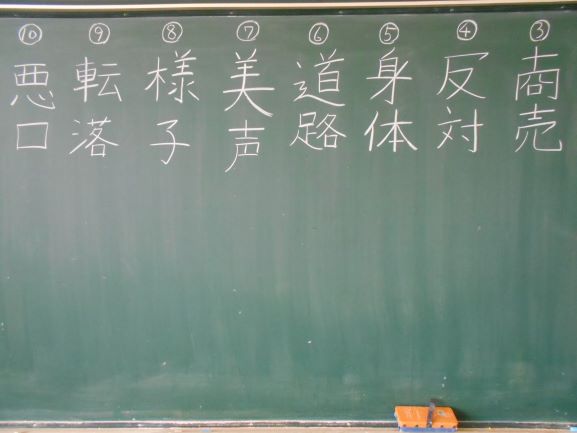 ③商売
④反対
⑤身体
⑥道路
⑦美声
⑧様子
⑨転落
⑩悪口